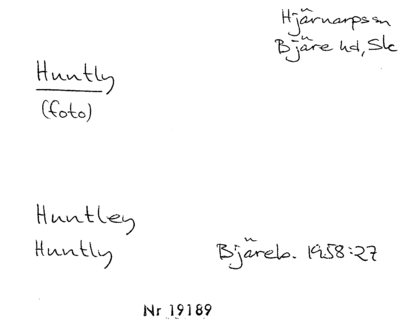 Hjärnarps sn
Bjäre hd, Sk
Huntly
(foto)
Huntley
Huntly Bjäreb. 1958:27
Nr 19189